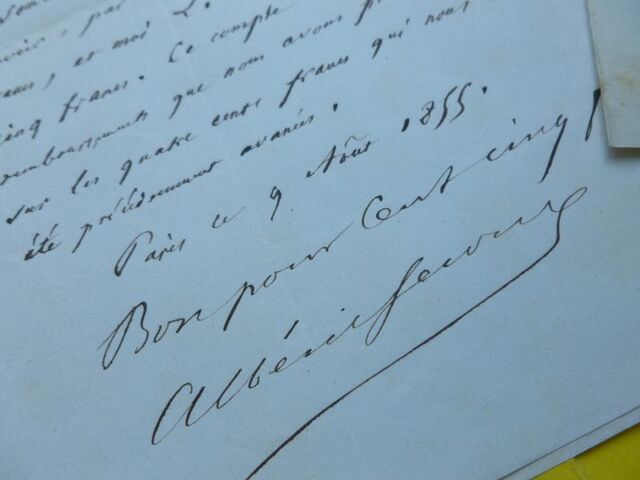 par
et moi L.
cinq francs. Ce compte
remboursements que nous avons
sur les quatre cents francs qui nous
été précédemment avancés.
Paris ce 9 Août 1855.
Bon pour Cent cinq f
Albéric Second